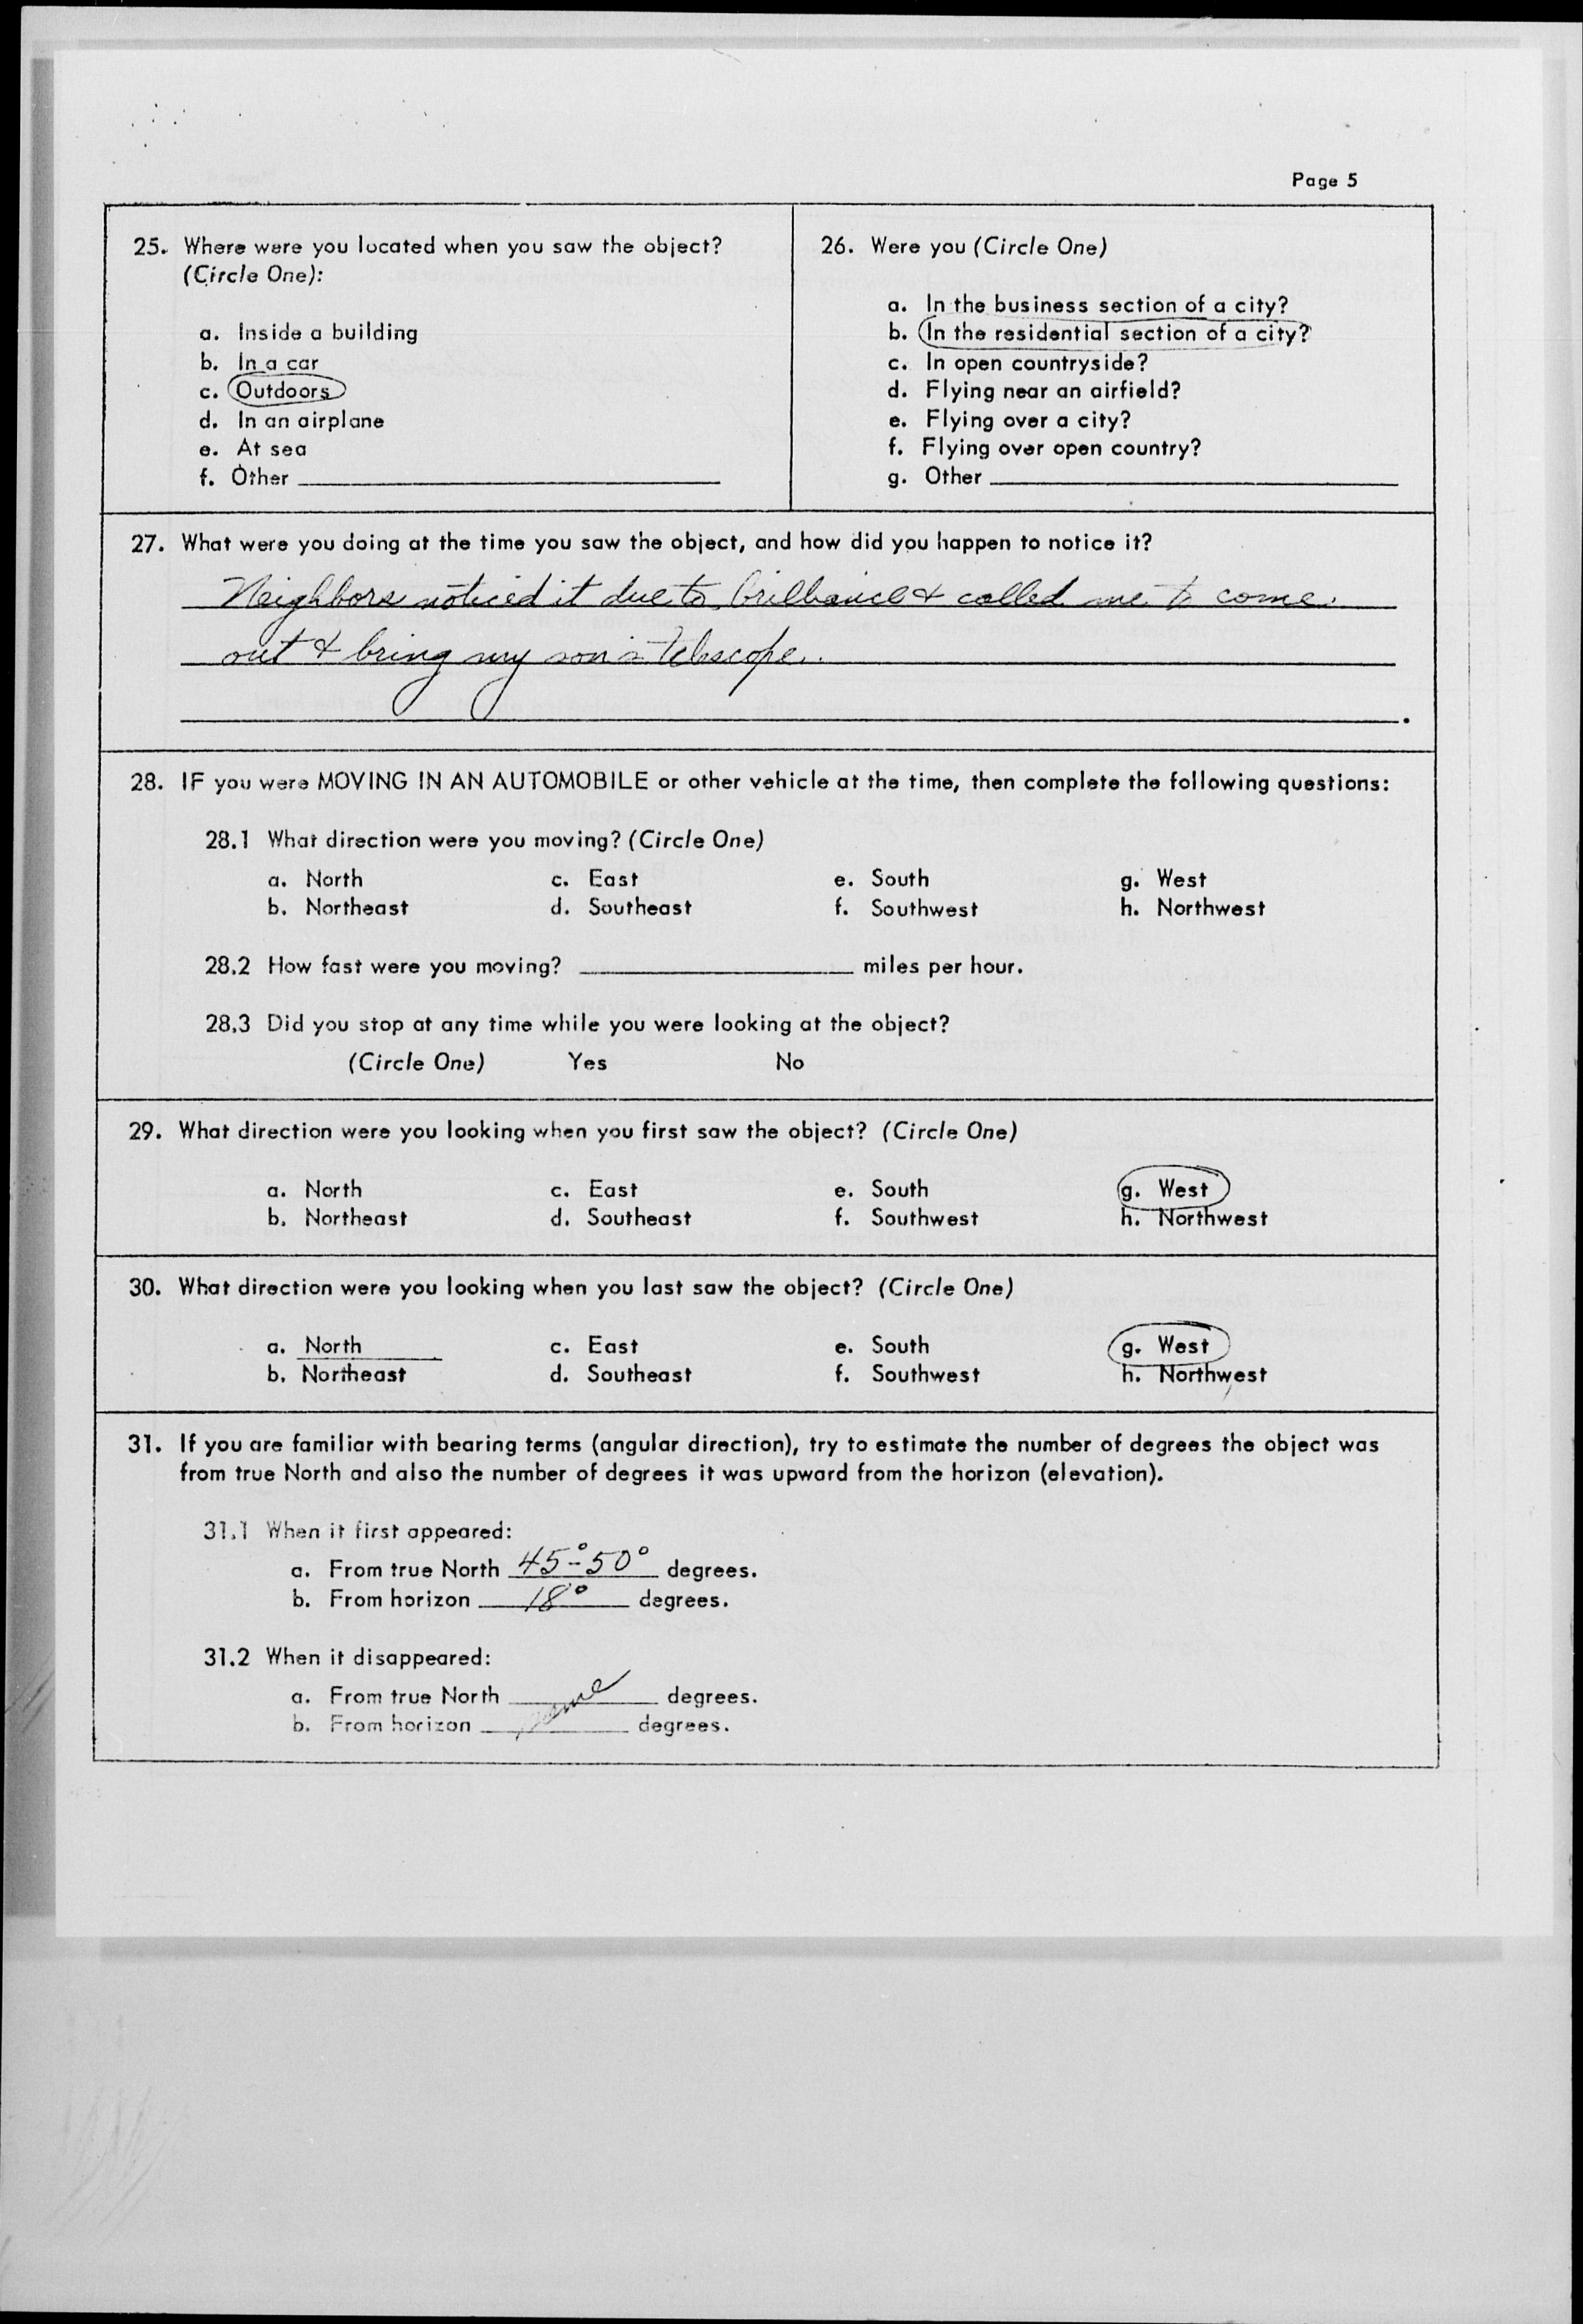 Page 5
25. Where were you located when you saw the object?
(Circle One):
a. Inside a building
b. In a car
c. Outdoors
d. In an airplane
e. At sea
f. Other
26. Were you (Circle One)
a. In the business section of a city?
b. In the residential section of a city?
c. In open countryside?
d. Flying near an airfield?
e. Flying over a city?
f. Flying over open country?
g. Other
27. What were you doing at the time you saw the object, and how did you happen to notice it?
Neighbors noticed it due to brilliance & called me to come
out & bring my son's telescope.
28. IF you were MOVING IN AN AUTOMOBILE or other vehicle at the time, then complete the following questions:
28.1 What direction were you moving? (Circle One)
a. North c. East e. South g. West
b. Northeast d. Southeast f. Southwest h. Northwest
28.2 How fast were you moving? miles per hour.
28.3 Did you stop at any time while you were looking at the object?
(Circle One) Yes No
29. What direction were you looking when you first saw the object? (Circle One)
a. North c. East e. South g. West
b. Northeast d. Southeast f. Southwest h. Northwest
30. What direction were you looking when you last saw the object? (Circle One)
a. North c. East e. South g. West
b. Northeast d. Southeast f. Southwest h. Northwest
31. If you are familiar with bearing terms (angular direction), try to estimate the number of degrees the object was
from true North and also the number of degrees it was upward from the horizon (elevation).
31.1 When it first appeared:
a. From true North 45°-50° degrees.
b. From horizon 18° degrees.
31.2 When it disappeared:
a. From true North same degrees.
b. From horizon degrees.